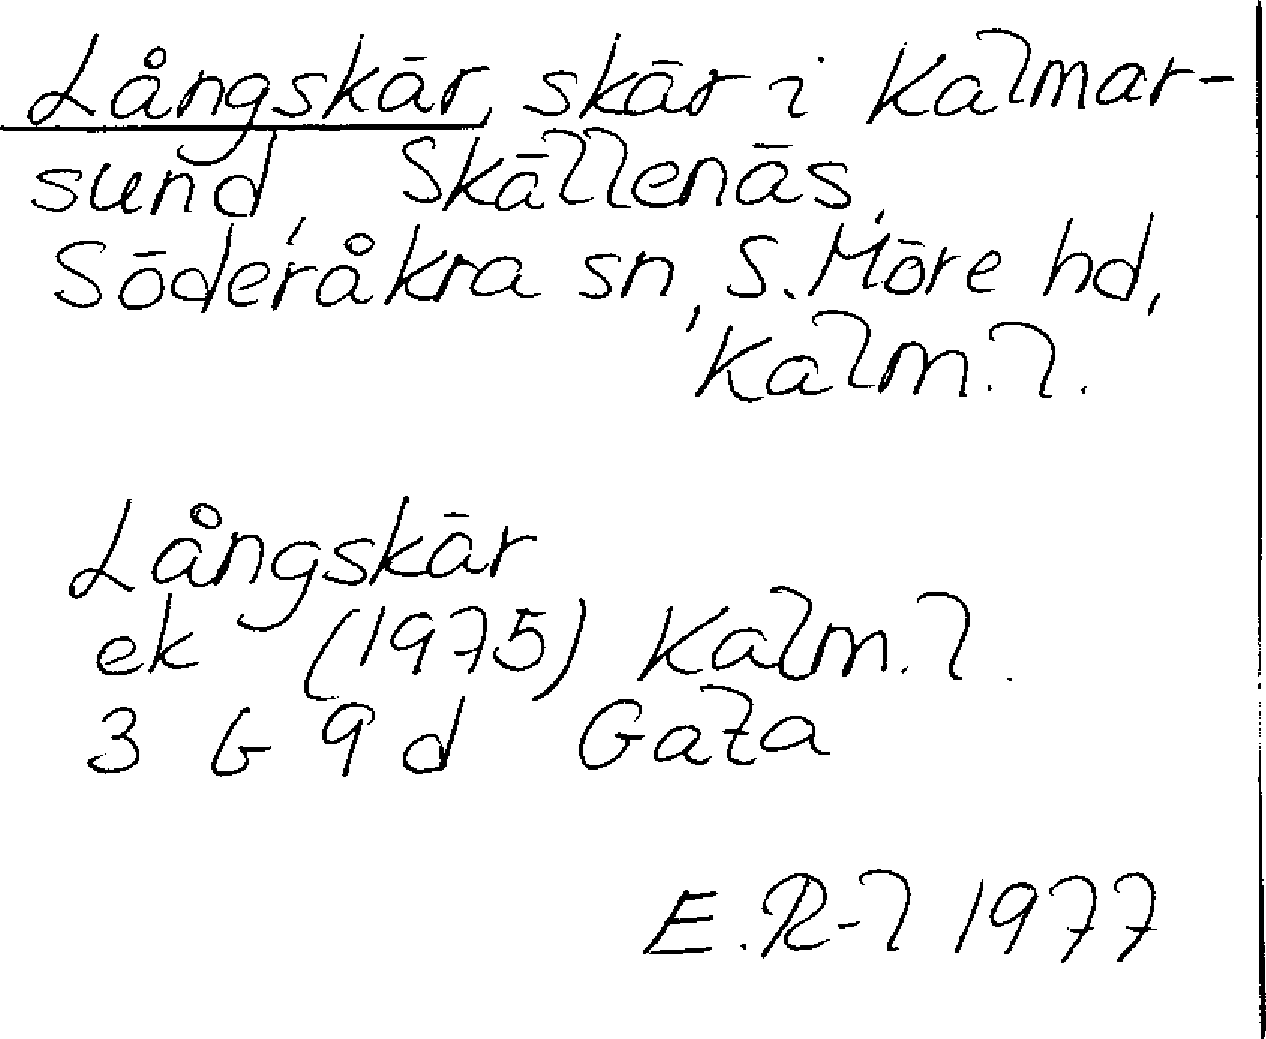 Långskär, skär i Kalmar-
sund, Skällenäs,
Söderåkra sn, S. Möre hd,
Kalm. l.
Långskär
ek (1975) Kalm. l.
3 G 9 d Gata
E. R-l 1977